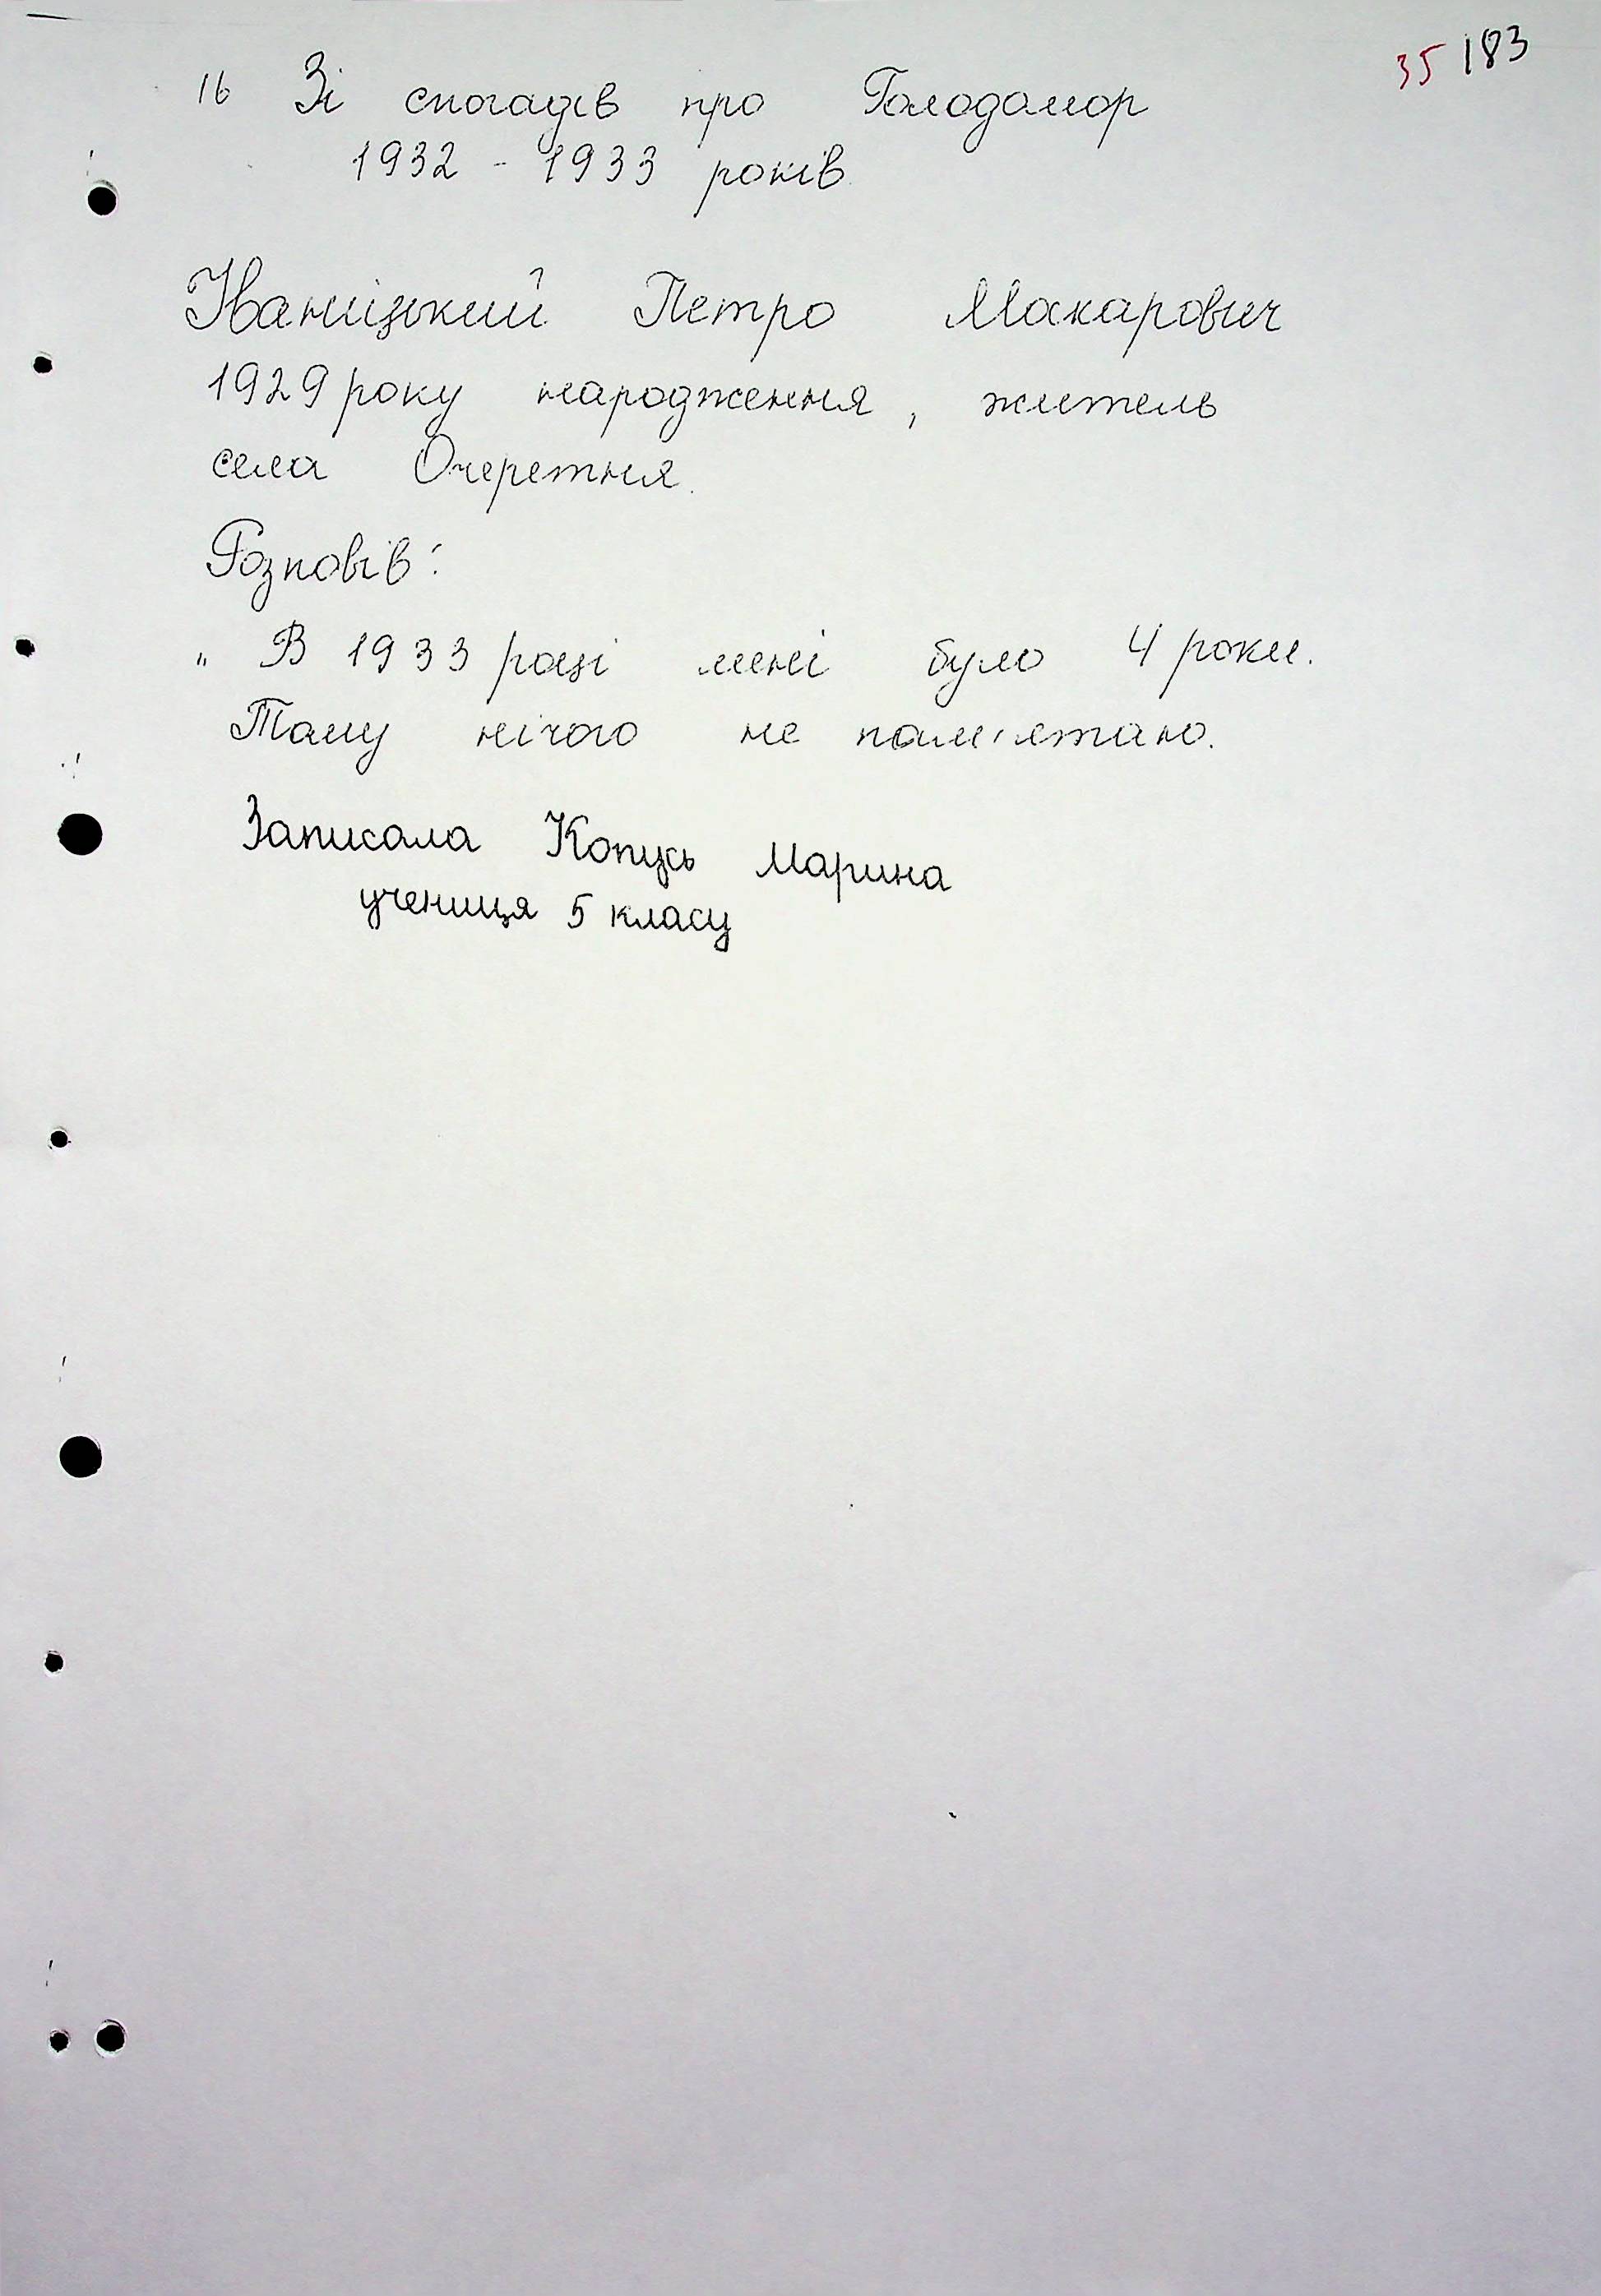 35 183
16 Зі спогадів про Голодомор
1932 - 1933 років.
Іваніцький Петро Макарович
1929 року народження, житель
села Очеретня.
Розповів:
„ В 1933 році мені було 4 роки.
Тому нічого не пам'ятаю.
Записала Копусь Марина
учениця 5 класу